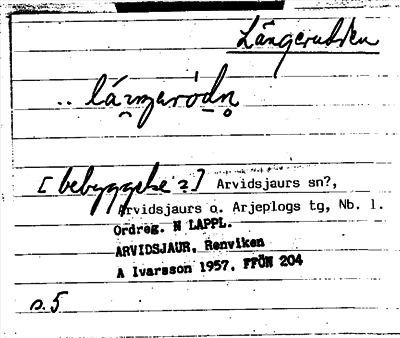 Långeudden
[bebyggelse ?] Arvidsjaurs sn?,
Arvidsjaurs o. Arjeplogs tg, Nb. l.
Ordreg. N LAPPL.
ARVIDSJAUR, Renviken
A Ivarsson 1957, FFÖN 204
s. 5